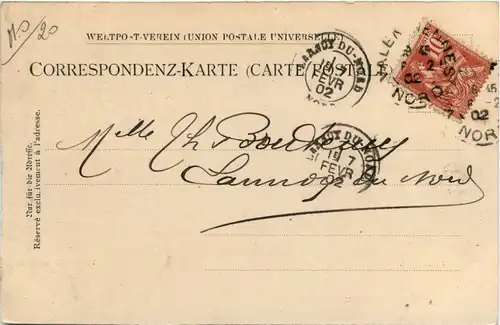 No/20
WELTPOSTVEREIN (UNION POSTALE UNIVERSELLE)
CORRESPONDENZ-KARTE (CARTE POSTALE)
LANNOY-DU-NORD
7
FEVR
02
NORD
VALENCIENNES
6
02
NORD
Nur für die Adresse.
Réservé exclusivement à l'adresse.
Mlle Th
LANNOY-DU-NORD
7
FEVR
02
Lannoy du Nord